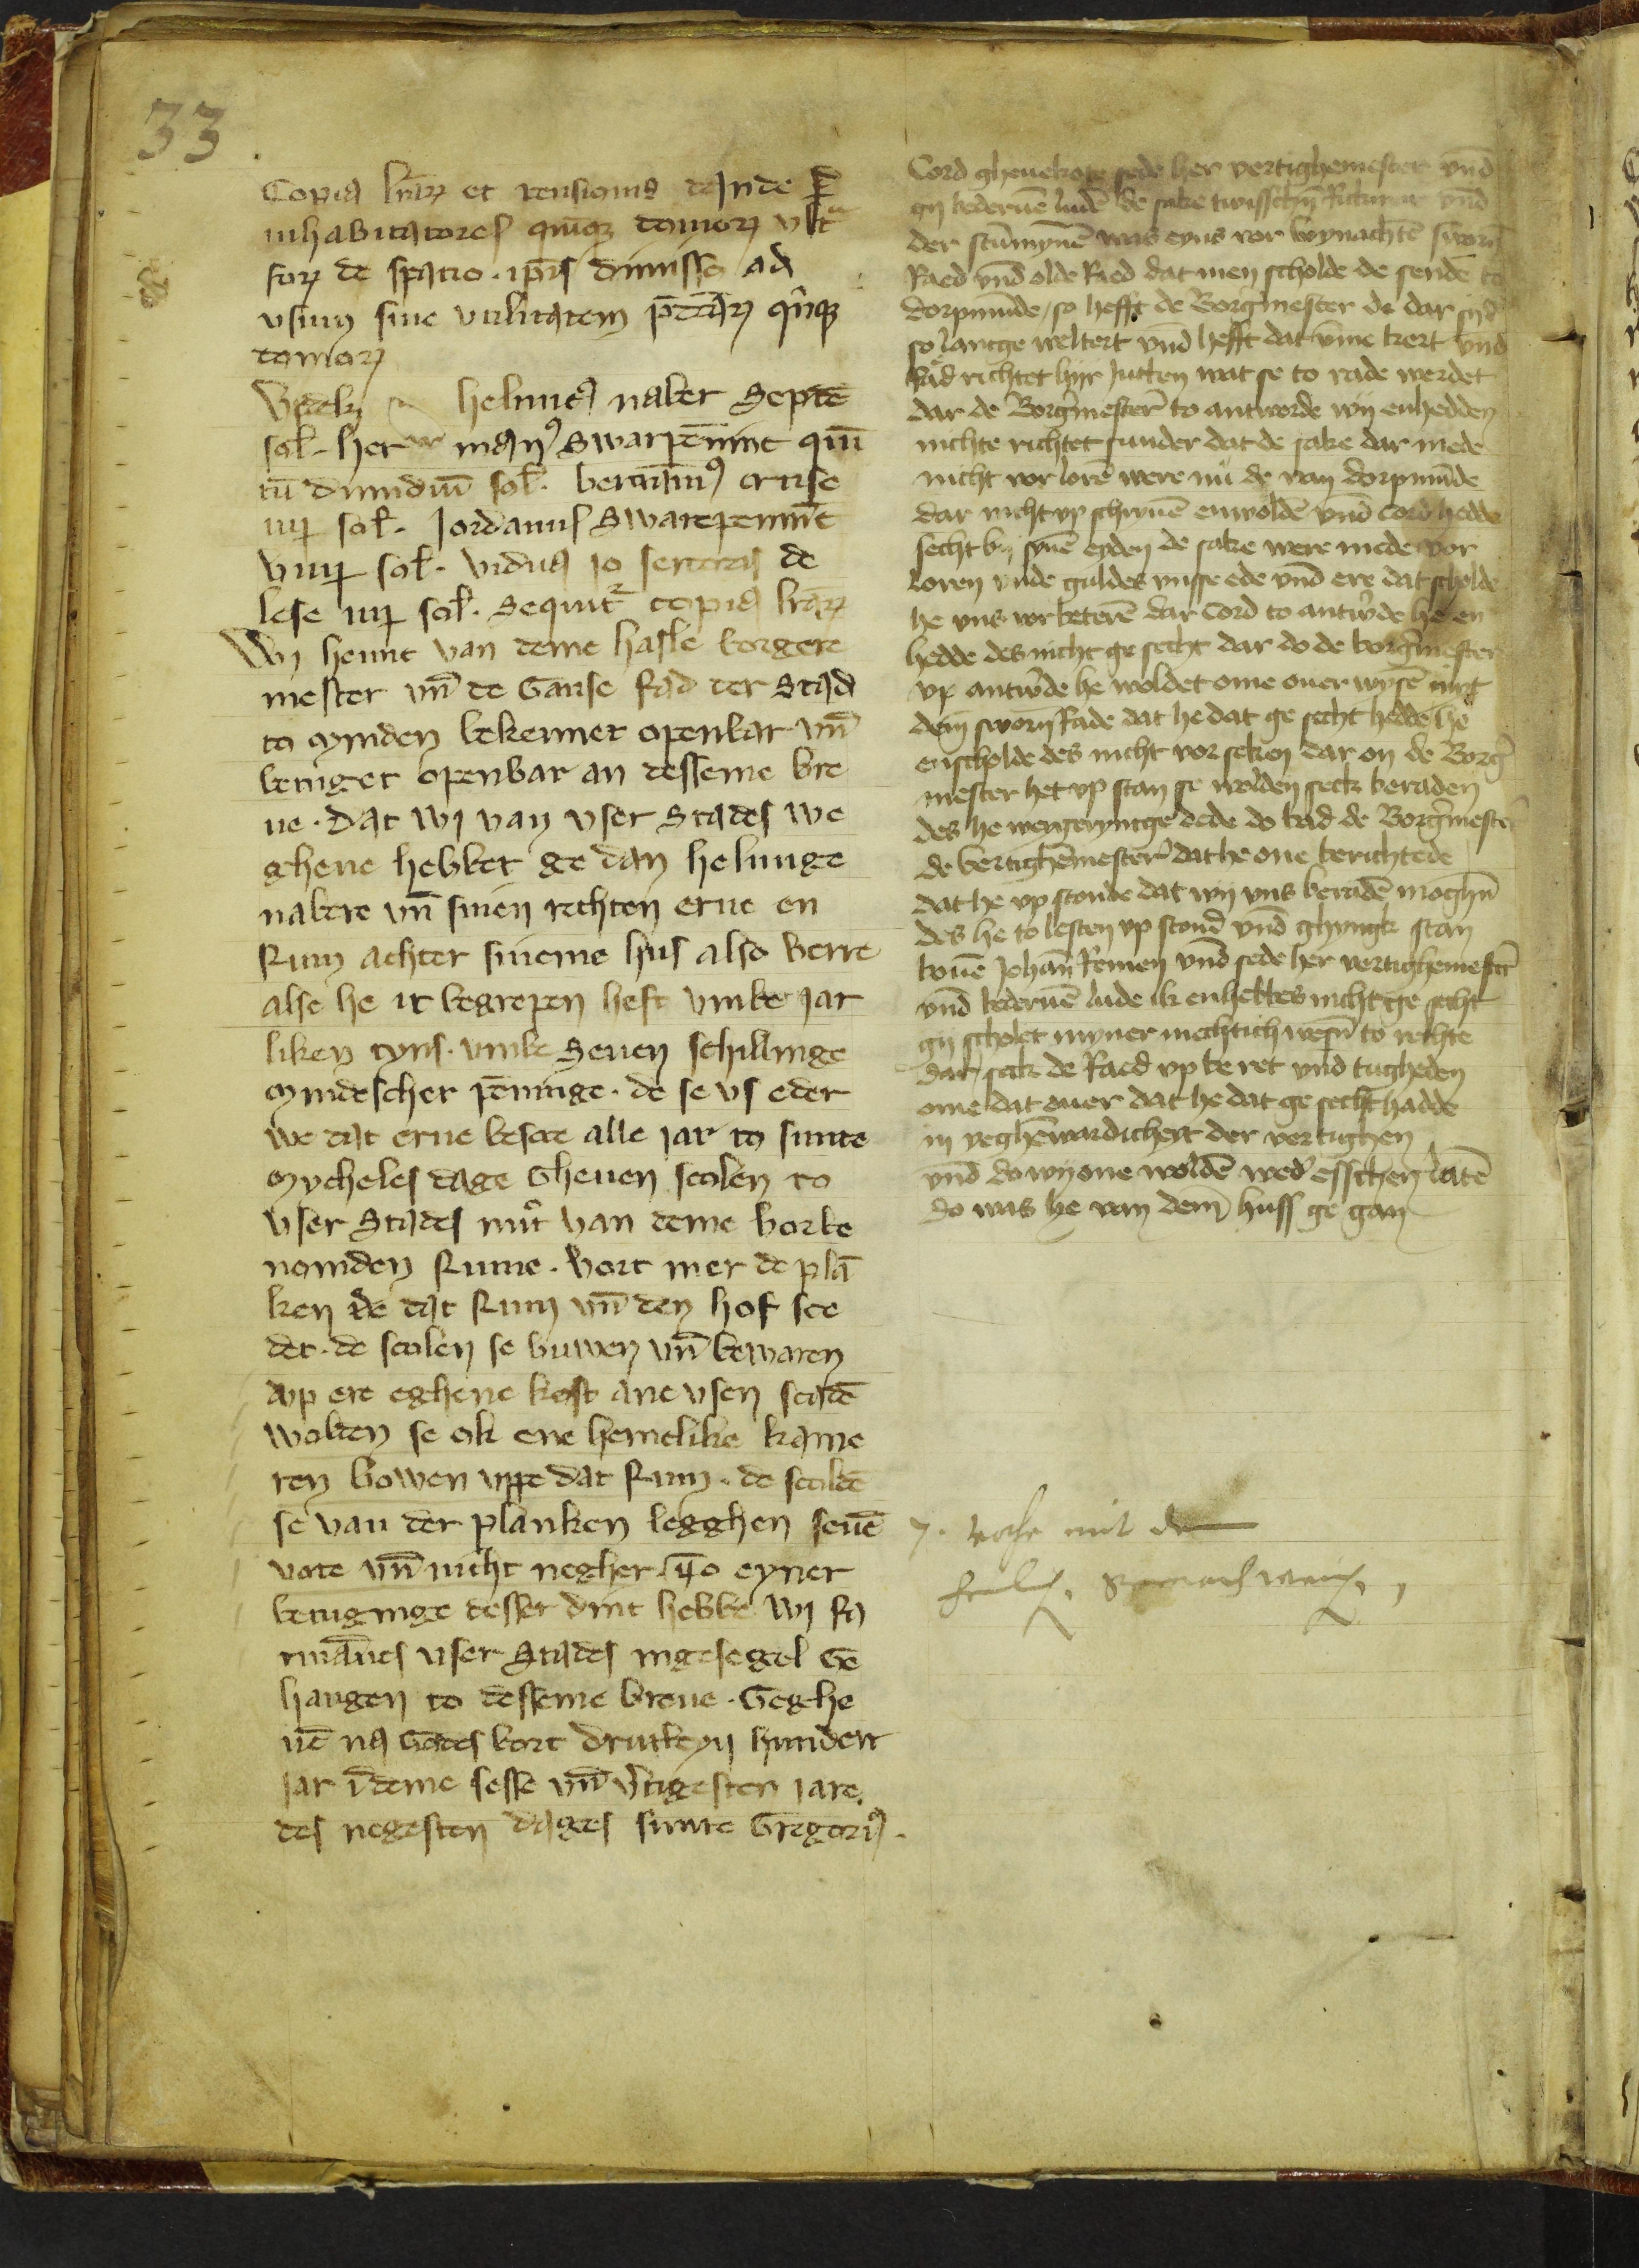 33
Copia litterarum et pensionis dande per
inhabitatores quinque domorum ultra
forum de spatio. ipsis dimisso ad
usum sive utilitatem predictarum quinque
domorum
Videlicet helmicus naber Septē
sol. her manꝰ Swartepenninc quī
tū dimidiū sol. bertramꝰ cruse
iiij sol. Jordanus Swartepennīc
viiij sol. vidua jo de
lese iiij sol. Sequitur copia lrarum
Wij henric van deme hasle borgere
mester vn̄ de Ganse Rad der Stad
to mynden bekennet openbar vn̄
betuget openbar an desseme bre
ue. dat wi van vser Stades we
ghene hebbet ge dan helmige
nabere vn̄ sinen rechten erue en
Rum achter sineme hus also verre
alse he it begrepen heft vmbe jar
liken tyns. vmbe Seuen schillinge
myndescher penninge. de se vs eder
we dat erue besat alle jar to sunte
mycheles dage Gheuen scolen to
vser Stades nut van deme vorbe
nomden Rume. Vort mer de plā
ken de dat Rum vn̄ den hof sce
det. de scolen se buwen vn̄ bewaren
up ere eghene kost ane vsen scadē
wolden se ok ene hemelike kame
ren bowen uppe dat Rum. de scoldē
se van der planken legghen seuē
vote vn̄ nicht negher. To eyner
betuginge desser dint hebbe wi ra
manes vser Stades ingesegel Ge
hangen to desseme breue. Geghe
uē na Godes bort drutteyn hundert
jar ī deme sesse vn̄ vertigesten jare.
des negesten dages sunte Gregoriꝰ.
Cord gheuekote sede her vertighemester vnd
gij bederuē ludē de sake twisschn vnd
der stūmynē was eyns vor wynachtē sworn
Raed vnd olde Raed dat men scholde de sendē to
dorpmūde, so hefft de Borgmester de dar syd
so lantge weltert vnd hefft dat vmē kert vnd
Rad richtet hijr Jutten wat se to rade werdet
dar de Borgmester to antworde wij enhedden
nichte richtet sunder dat de sake dar mede
nicht vor lorē were nu de van dorpmūde
dar nicht vp schriuē enwoldē vnd Cord hedde
secht by synē eyden de sake were mede vor
loren vnde guldes vnsse ede vnd ere dat scholde
he vns vorbeterē dar Cord to antwde he en
hedde des nicht ge secht dar do de borgmester
vp antwde he woldet ome ouer wysē mit
dem sworn Rade dat he dat ge secht hedde he
enscholde des nicht vorseken dar on de Borg
mester het vp stan se wolden seck beraden
des he wegeryntge dede do bad de Borgmester
de vertighemester dat he one berichtede
dat he vp stonde dat wij vns beradē moghn
des he to lesten vp stond vnd ghyngk stan
bouē Johan Remen vnd sede her vertighemester
vnd bederuē lude ik enhebbes nicht ge secht
gij scholet myner mechtich wesn to rechte
dar sek de Raed vp beret vnd tugheden
ome dat ouer dat he dat ge secht hadde
in yeghēwardicheyt der vertighen
vnd do wij one woldē wedˀ esschen latē
do was he van dem huss ge gan